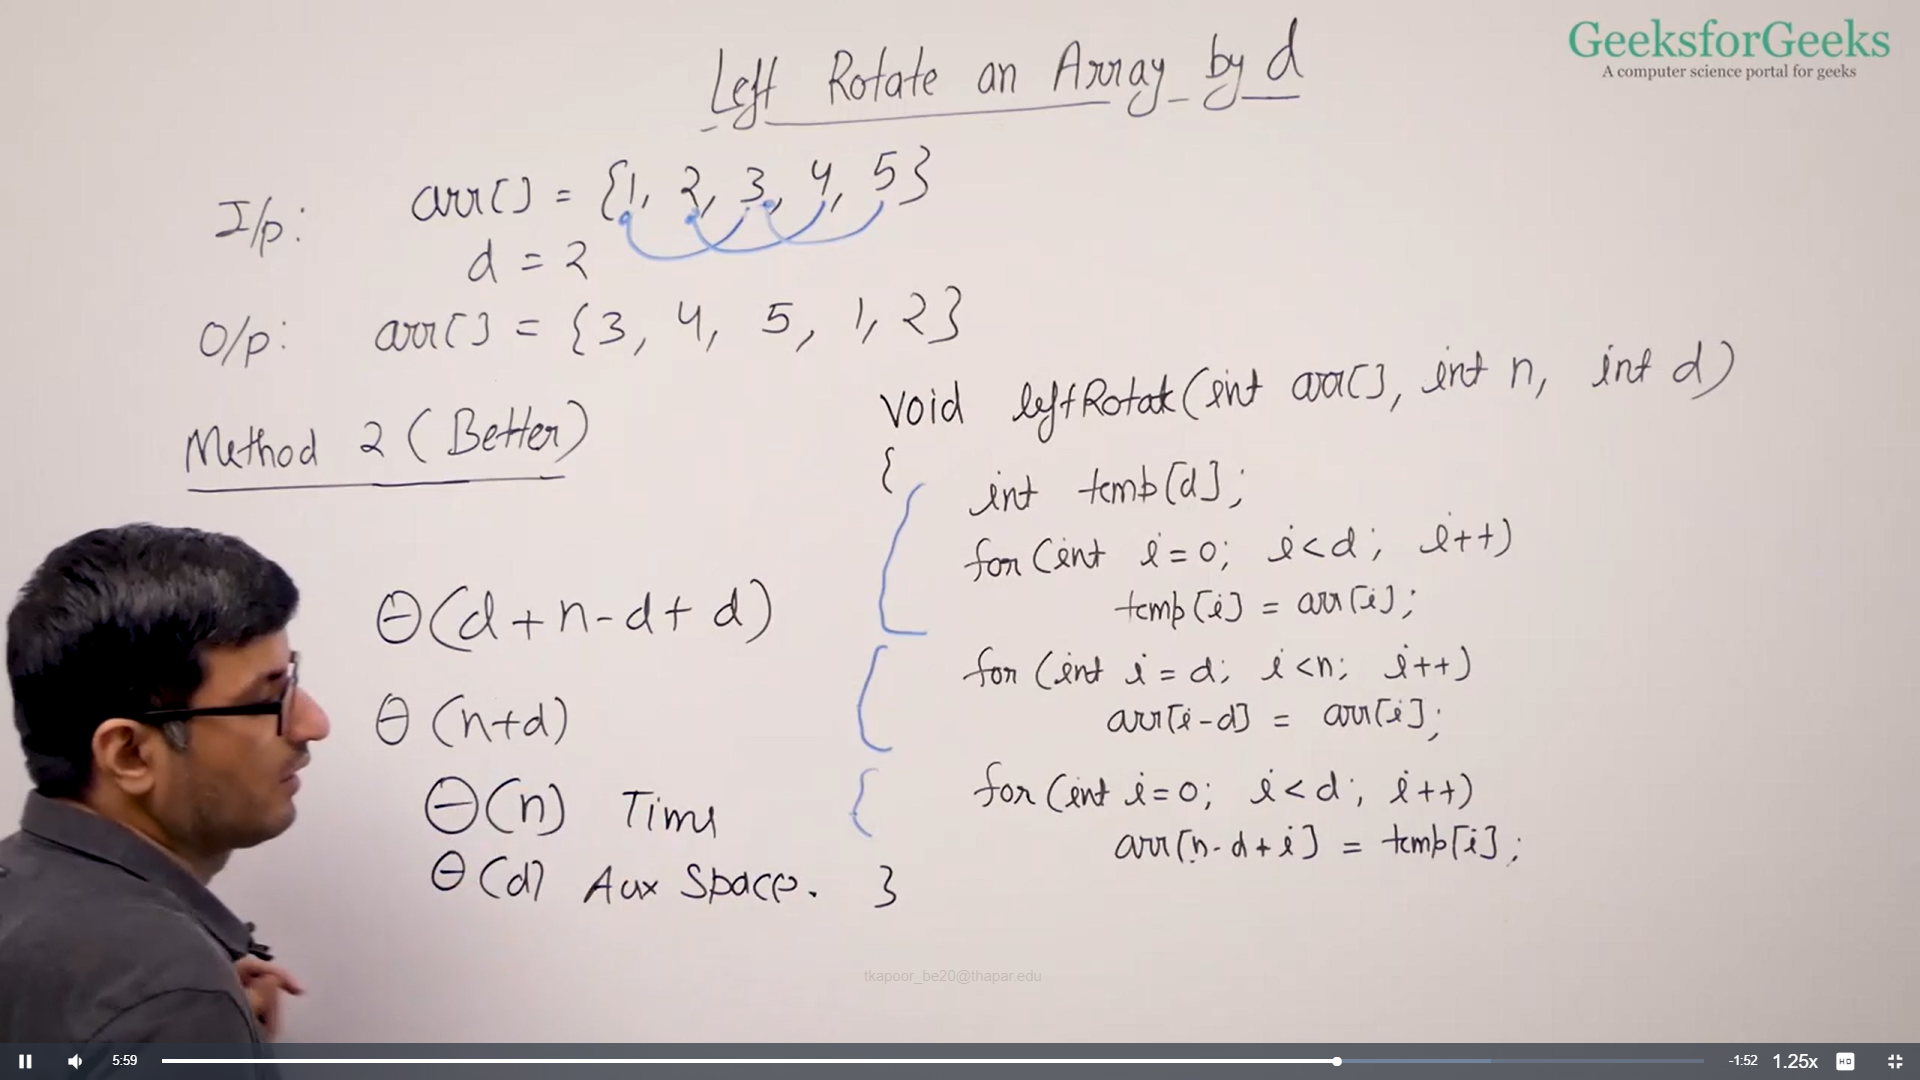 GeeksforGeeks
A computer science portal for geeks
Left Rotate an Array by d
I/p: arr[] = {1, 2, 3, 4, 5}
d = 2
O/p: arr[] = {3, 4, 5, 1, 2}
Method 2 (Better)
θ(d+n-d+d)
θ(n+d)
θ(n) Time
θ(d) Aux Space.
void leftRotate(int arr[], int n, int d)
{
int temp[d];
for (int i=0; i<d; i++)
temp[i] = arr[i];
for (int i=d; i<n; i++)
arr[i-d] = arr[i];
for (int i=0; i<d; i++)
arr[n-d+i] = temp[i];
}
tkapoor_be20@thapar.edu
5:59
-1:52
1.25x
HD